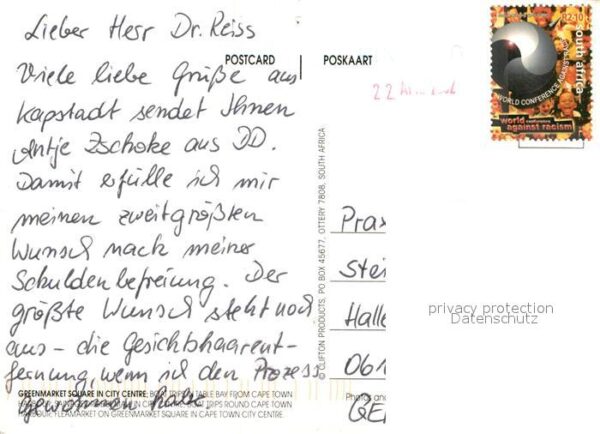 Lieber Herr Dr. Reiss
Viele liebe Grüße aus
Kapstadt sendet Ihnen
Antje Zschoke aus DD.
Damit erfülle ich mir
meinen zweitgrößten
Wunsch nach meiner
Schuldenbefreiung. Der
größte Wunsch steht noch
aus - die Gesichtshaarent-
fernung, wenn ich den Prozess
gewonnen habe
GREENMARKET SQUARE IN CITY CENTRE; BOAT TRIPS TABLE BAY FROM CAPE TOWN
BOAT TRIPS ROUND CAPE TOWN
HARBOUR; FLEAMARKET ON GREENMARKET SQUARE IN CAPE TOWN CITY CENTRE
POSTCARD
POSKAART
© CLIFTON PRODUCTS, PO BOX 45677, OTTERY 7808, SOUTH AFRICA
22
R2.10
south africa
WORLD CONFERENCE AGAINST RACISM
world conference
against racism
Prax
Stei
Halle
061
Photos and
GE
privacy protection
Datenschutz